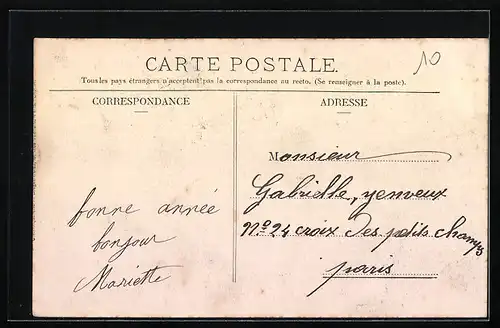 10
CARTE POSTALE.
Tous les pays étrangers n'acceptent pas la correspondance au recto. (Se renseigner à la poste).
CORRESPONDANCE
bonne année
bonjour
Mariette
ADRESSE
Monsieur
Gabrielle, yenveux
Nº 24 croix des petits champs
paris